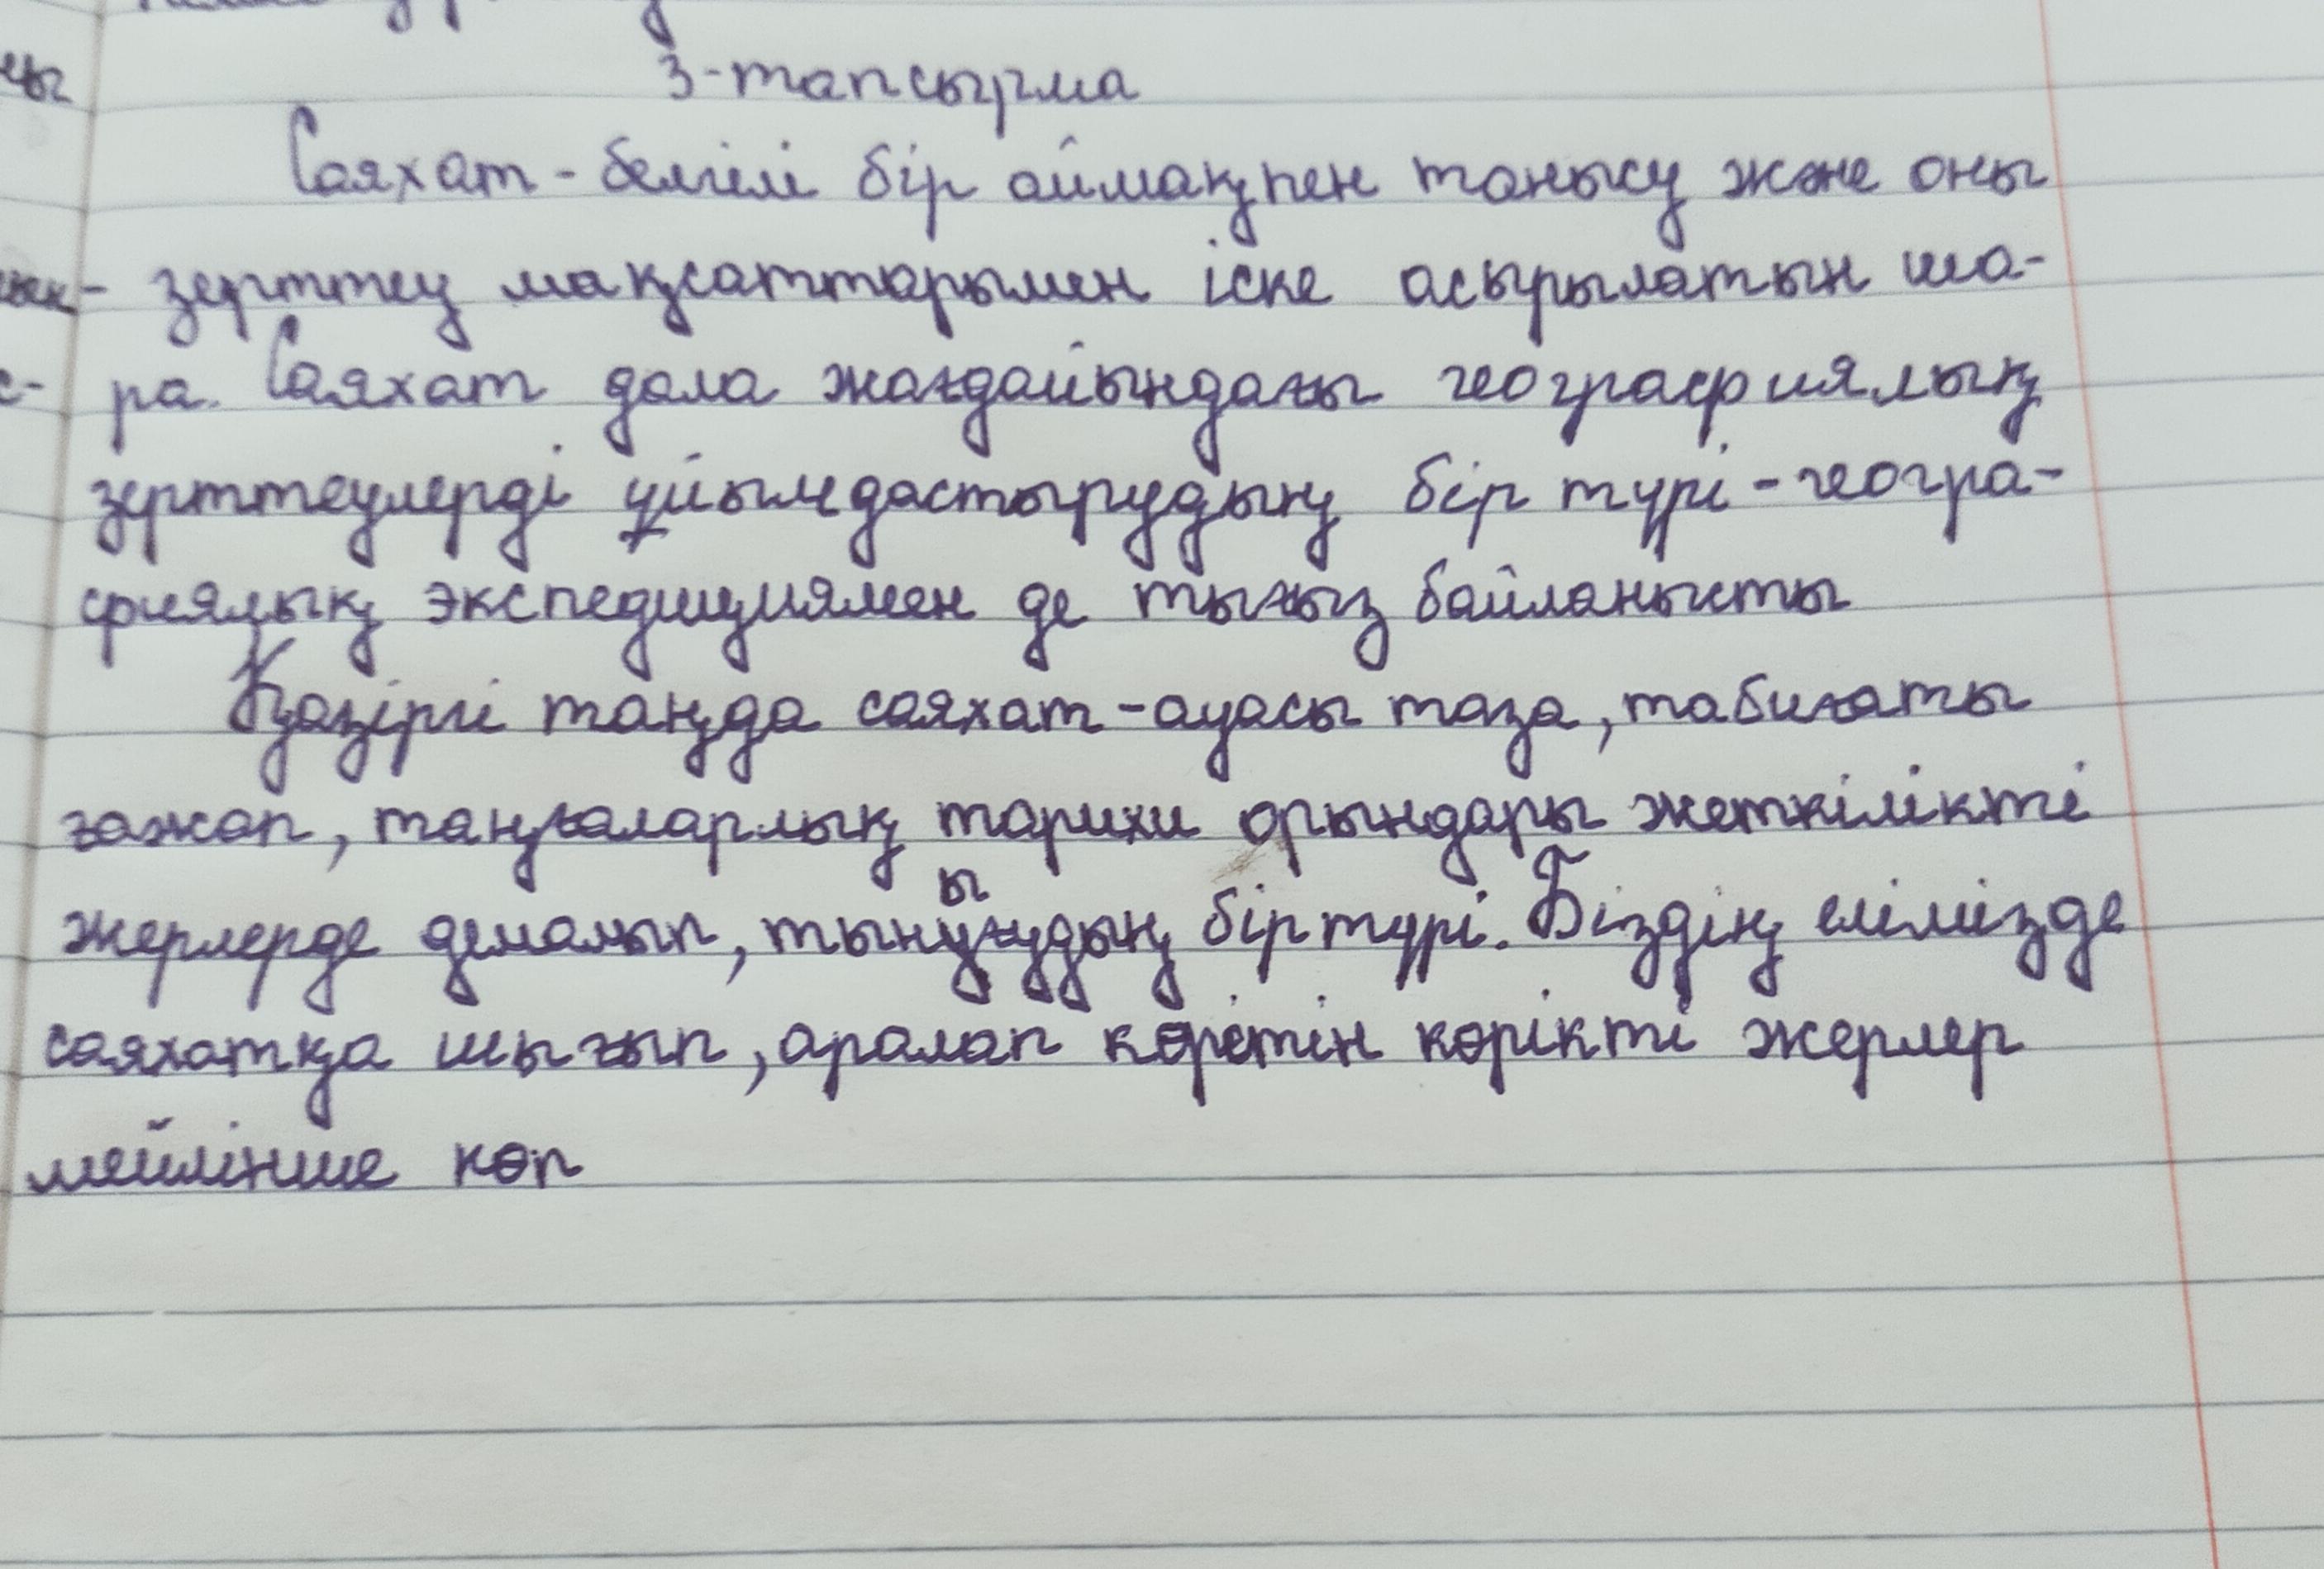 3-тапсырма
Саяхат - белгілі бір аймақпен танысу және оны
зерттеу мақсаттарымен іске асырылатын ша-
ра. Саяхат дала жағдайындағы географиялық
зерттеулерді ұйымдастырудың бір түрі - геогра-
фиялық экспедициямен де тығыз байланысты
Қазіргі таңда саяхат - ауасы таза, табиғаты
ғажап, таңғаларлық тарихи орындары жеткілікті
жерлерде демалып, тынығудың бір түрі. Біздің елімізде
саяхатқа шығып, аралап көретін көрікті жерлер
мейлінше көп